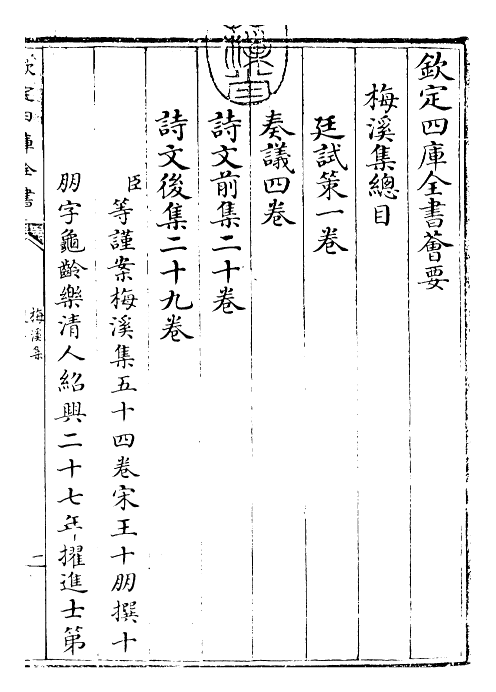 欽定四庫全書薈要
梅溪集總目
廷試策一卷
奏議四卷
詩文前集二十卷
詩文後集二十九卷
臣等謹案梅溪集五十四卷宋王十朋撰十
朋字龜齡樂清人紹興二十七年擢進士第
欽定四庫全書
梅溪集
一